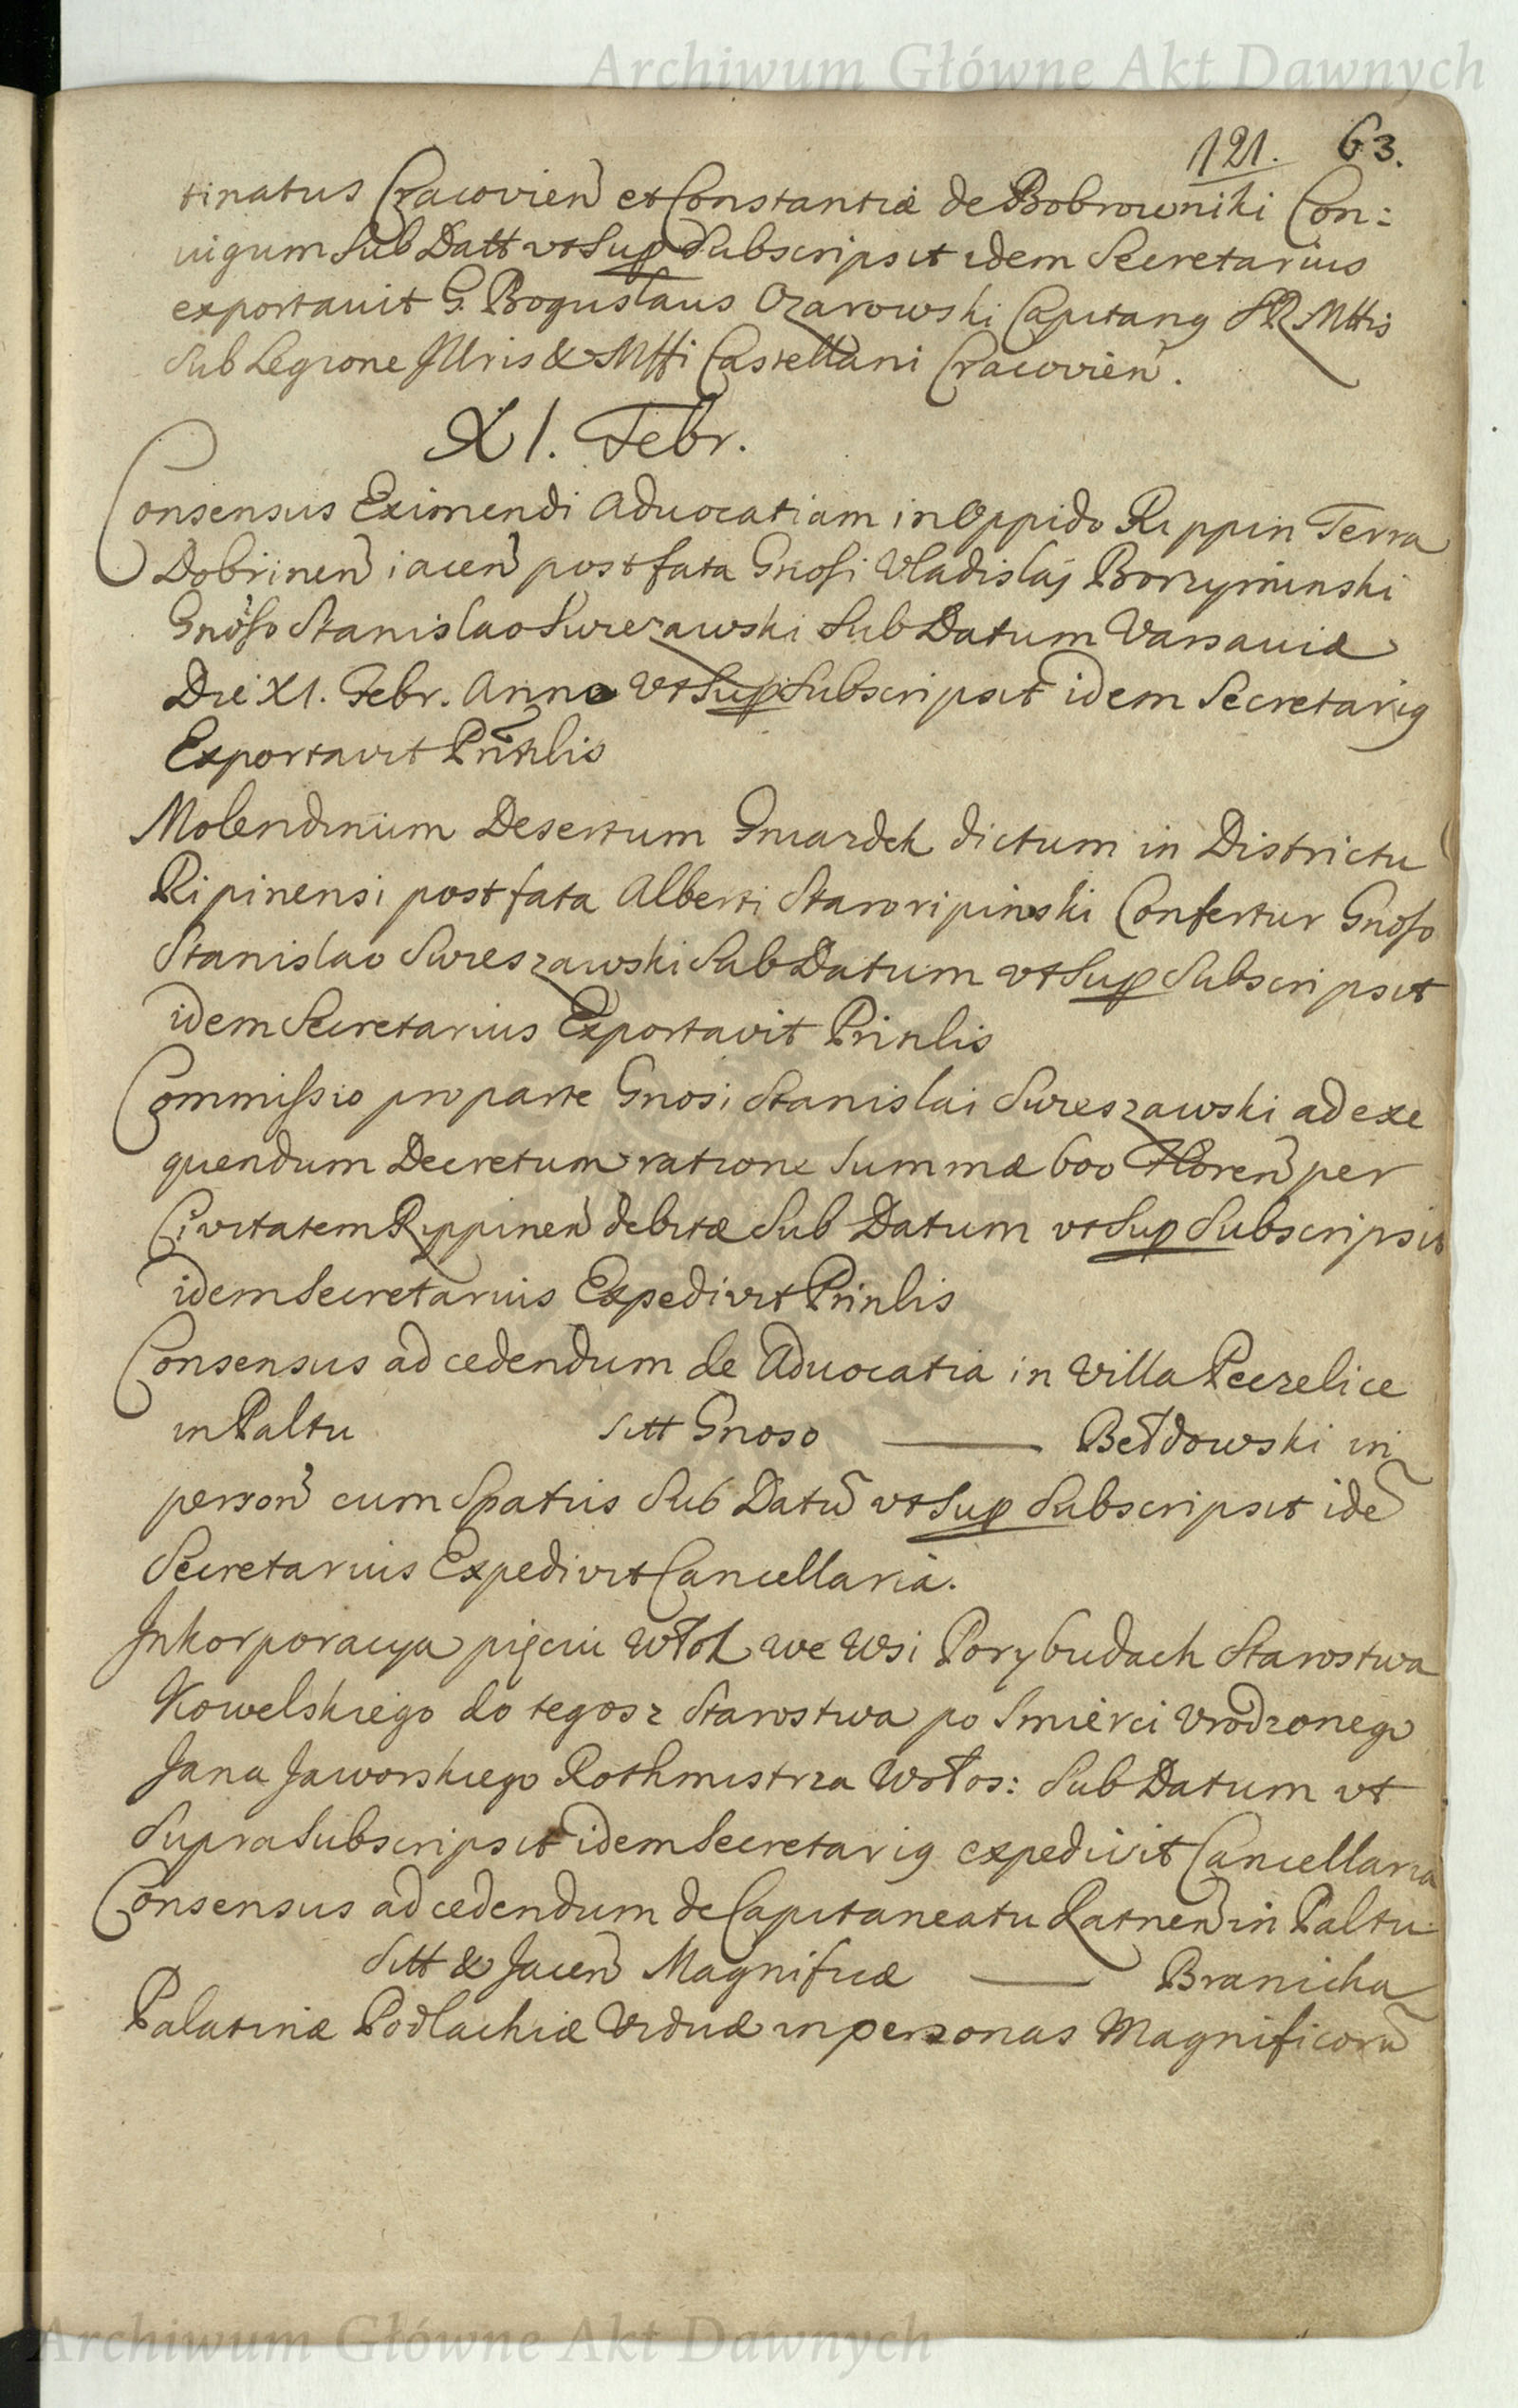 Archiwum Główne Akt Dawnych
121. 63.
tinatus Cracovien et Constantiæ de Bobrowniki Con:
iugum Sub Datt vt Sup Subscripsit idem Secretarius
exportauit G. Boguslaus Ozarowski Capitang SR Mttis
Sub Legione Illris & Mffi Castellani Cracovien.
XI. Febr.
Consensus Eximendi Aduocatiam in Oppido Rippin Terra
Dobrinen iacen post fata Gnosi Vladislaj Borzyminski
Gnoso Stanislao Swieszawski Sub Datum Varsauiæ
Die XI. Febr. Anno vt Sup Subscripsit idem Secretarig
Exportavit Prinlis
Molendinum Desertum Gniazdek dictum in Districtu
Ripinensi post fata Alberti Staroripinski Confertur Gnoso
Stanislao Swieszawski Sub Datum vt Sup Subscripsit
idem Secretarius Exportavit Prinlis
Commissio pro parte Gnosi Stanislai Swieszawski ad exe
quendum Decretum ratione Summæ 600 Floren per
Civitatem Rippinen debitæ Sub Datum vt Sup Subscripsit
idem Secretarius Expedivit Prinlis
Consensus ad cedendum de Aduocatia in Villa Peczelice
in Paltu Sitt Gnoso — Bełdowski in
person cum Spatiis Sub Datū vt Sup Subscripsit idē
Secretarius Expedivit Cancellaria.
Inkorporacya pięciu Włok we Wsi Porybudach Starostwa
Kowelskiego do tegosz Starostwa po Smierci Vrodzonego
Jana Jaworskiego Rothmistrza Wołos: Sub Datum vt
Supra Subscripsit idem Secretarig expedivit Cancellaria
Consensus ad cedendum de Capitaneatu Ratnen in Paltu
Sitt & Jacen Magnificæ — Branicka
Palatinæ Podlachiæ Viduæ in personas Magnificorū
Archiwum Główne Akt Dawnych